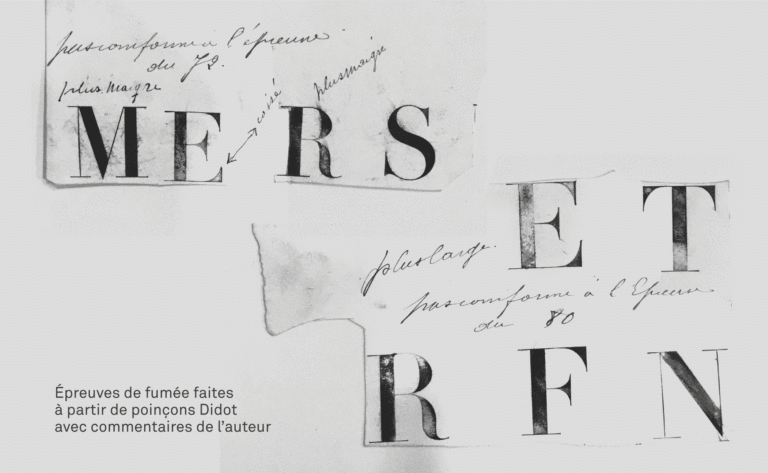 pas conforme à l'épreuve
du 72.
plus maigre
plus maigre
M E R S
E T
plus large.
pas conforme à l'Epreuve
du 80
R F N
Épreuves de fumée faites
à partir de poinçons Didot
avec commentaires de l'auteur